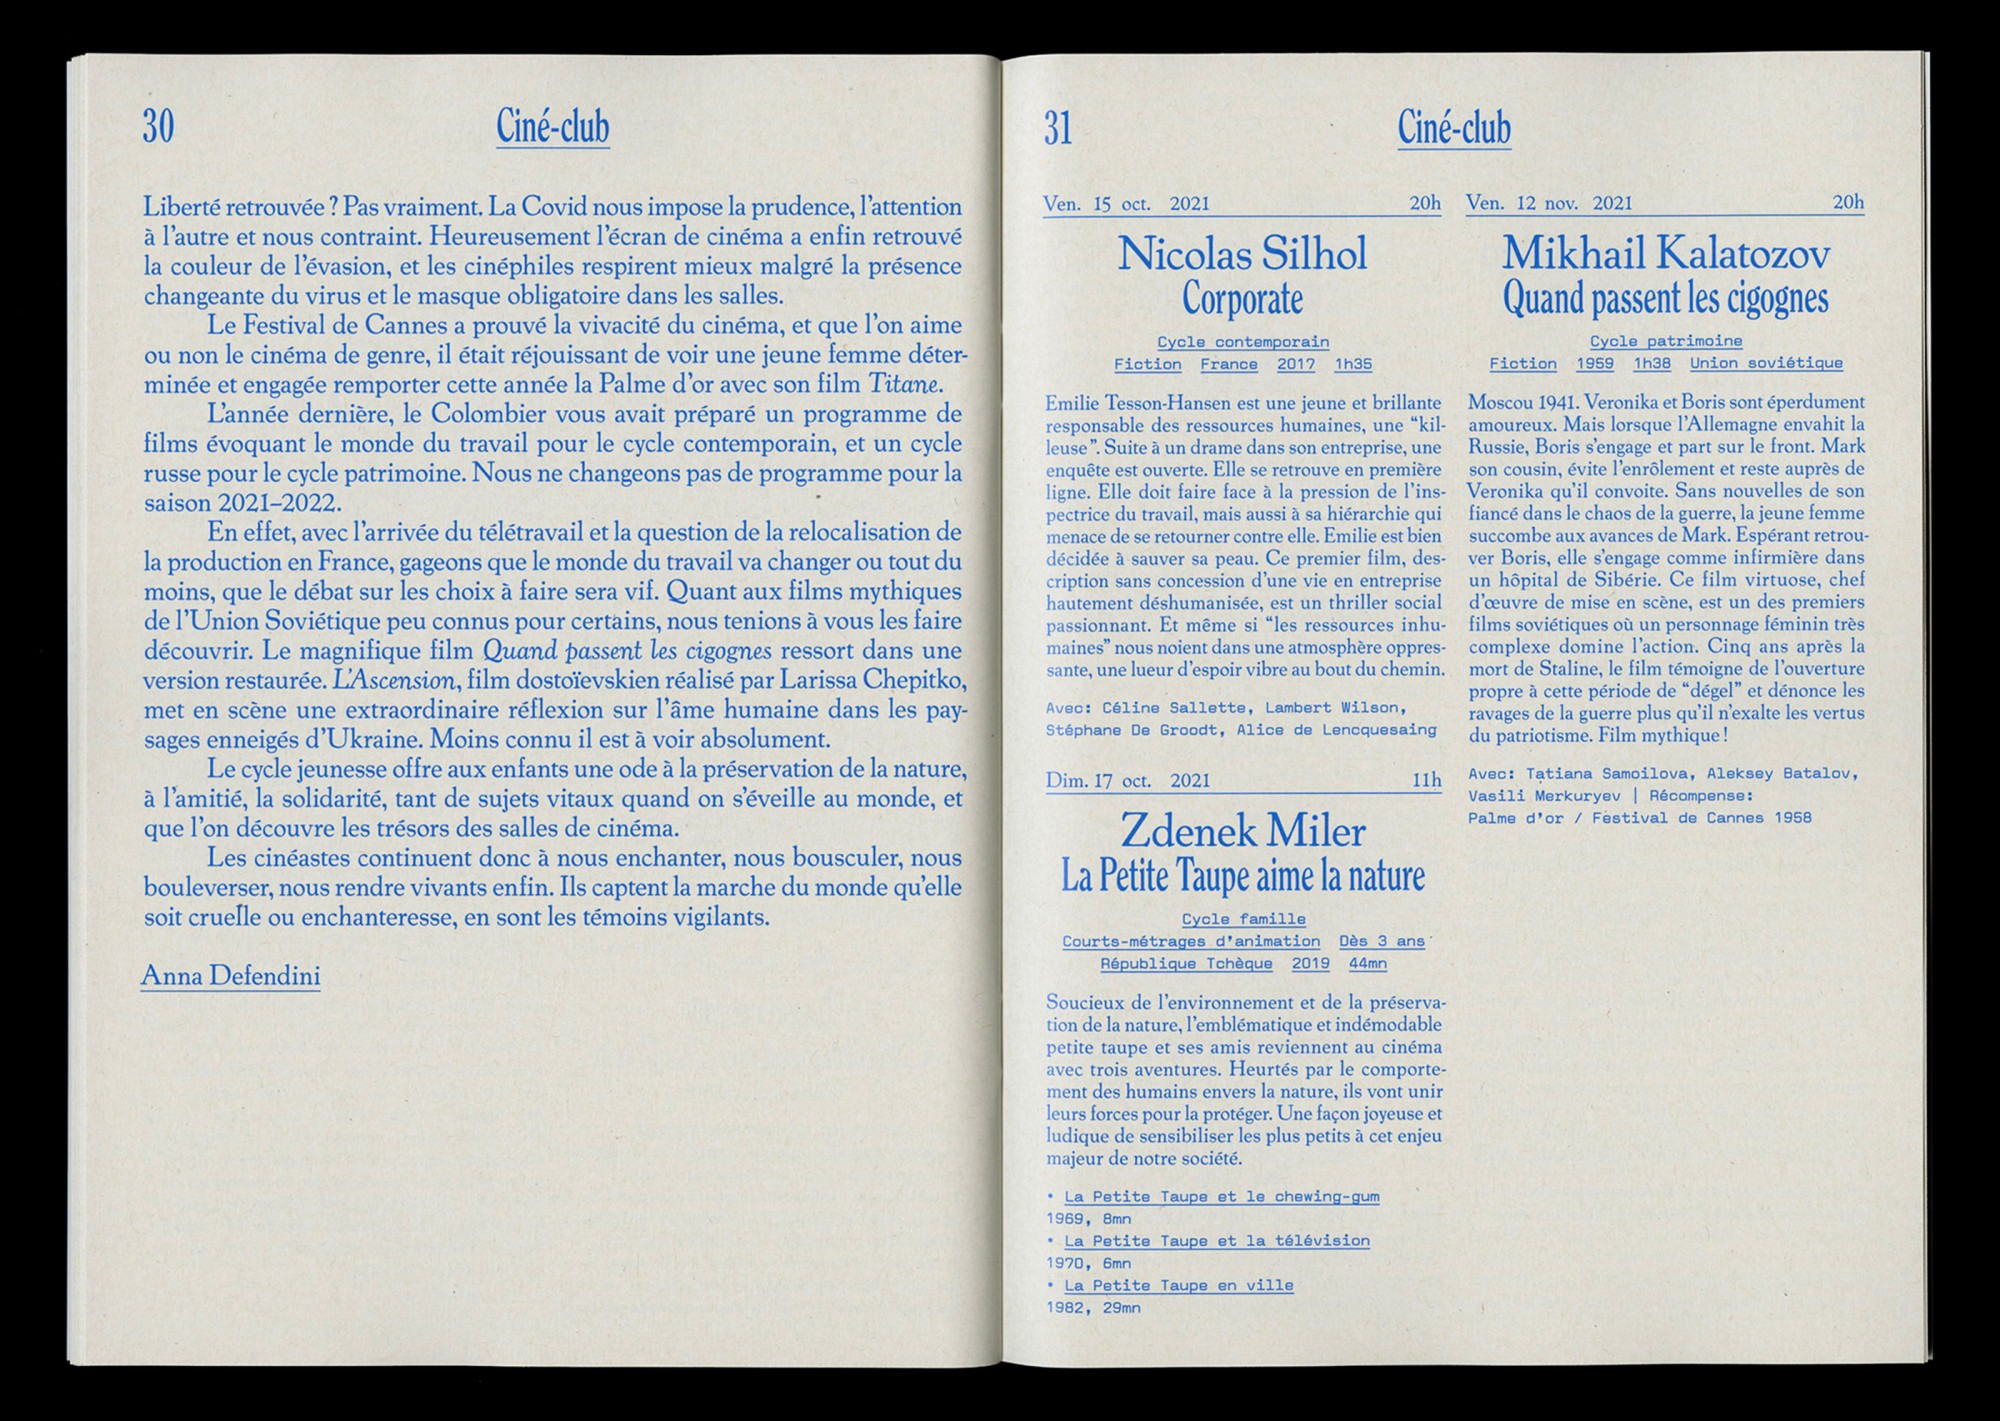 30
Ciné-club
Liberté retrouvée ? Pas vraiment. La Covid nous impose la prudence, l'attention
à l'autre et nous contraint. Heureusement l'écran de cinéma a enfin retrouvé
la couleur de l'évasion, et les cinéphiles respirent mieux malgré la présence
changeante du virus et le masque obligatoire dans les salles.
Le Festival de Cannes a prouvé la vivacité du cinéma, et que l'on aime
ou non le cinéma de genre, il était réjouissant de voir une jeune femme déter-
minée et engagée remporter cette année la Palme d'or avec son film Titane.
L'année dernière, le Colombier vous avait préparé un programme de
films évoquant le monde du travail pour le cycle contemporain, et un cycle
russe pour le cycle patrimoine. Nous ne changeons pas de programme pour la
saison 2021–2022.
En effet, avec l'arrivée du télétravail et la question de la relocalisation de
la production en France, gageons que le monde du travail va changer ou tout du
moins, que le débat sur les choix à faire sera vif. Quant aux films mythiques
de l'Union Soviétique peu connus pour certains, nous tenions à vous les faire
découvrir. Le magnifique film Quand passent les cigognes ressort dans une
version restaurée. L'Ascension, film dostoïevskien réalisé par Larissa Chepitko,
met en scène une extraordinaire réflexion sur l'âme humaine dans les pay-
sages enneigés d'Ukraine. Moins connu il est à voir absolument.
Le cycle jeunesse offre aux enfants une ode à la préservation de la nature,
à l'amitié, la solidarité, tant de sujets vitaux quand on s'éveille au monde, et
que l'on découvre les trésors des salles de cinéma.
Les cinéastes continuent donc à nous enchanter, nous bousculer, nous
bouleverser, nous rendre vivants enfin. Ils captent la marche du monde qu'elle
soit cruelle ou enchanteresse, en sont les témoins vigilants.
Anna Defendini
31
Ciné-club
Ven. 15 oct. 2021 20h
Nicolas Silhol
Corporate
Cycle contemporain
Fiction France 2017 1h35
Emilie Tesson-Hansen est une jeune et brillante
responsable des ressources humaines, une “kil-
leuse”. Suite à un drame dans son entreprise, une
enquête est ouverte. Elle se retrouve en première
ligne. Elle doit faire face à la pression de l'ins-
pectrice du travail, mais aussi à sa hiérarchie qui
menace de se retourner contre elle. Emilie est bien
décidée à sauver sa peau. Ce premier film, des-
cription sans concession d'une vie en entreprise
hautement déshumanisée, est un thriller social
passionnant. Et même si “les ressources inhu-
maines” nous noient dans une atmosphère oppres-
sante, une lueur d'espoir vibre au bout du chemin.
Avec: Céline Sallette, Lambert Wilson,
Stéphane De Groodt, Alice de Lencquesaing
Dim. 17 oct. 2021 11h
Zdenek Miler
La Petite Taupe aime la nature
Cycle famille
Courts-métrages d'animation Dès 3 ans
République Tchèque 2019 44mn
Soucieux de l'environnement et de la préserva-
tion de la nature, l'emblématique et indémodable
petite taupe et ses amis reviennent au cinéma
avec trois aventures. Heurtés par le comporte-
ment des humains envers la nature, ils vont unir
leurs forces pour la protéger. Une façon joyeuse et
ludique de sensibiliser les plus petits à cet enjeu
majeur de notre société.
• La Petite Taupe et le chewing-gum
1969, 8mn
• La Petite Taupe et la télévision
1970, 6mn
• La Petite Taupe en ville
1982, 29mn
Ven. 12 nov. 2021 20h
Mikhail Kalatozov
Quand passent les cigognes
Cycle patrimoine
Fiction 1959 1h38 Union soviétique
Moscou 1941. Veronika et Boris sont éperdument
amoureux. Mais lorsque l'Allemagne envahit la
Russie, Boris s'engage et part sur le front. Mark
son cousin, évite l'enrôlement et reste auprès de
Veronika qu'il convoite. Sans nouvelles de son
fiancé dans le chaos de la guerre, la jeune femme
succombe aux avances de Mark. Espérant retrou-
ver Boris, elle s'engage comme infirmière dans
un hôpital de Sibérie. Ce film virtuose, chef
d'œuvre de mise en scène, est un des premiers
films soviétiques où un personnage féminin très
complexe domine l'action. Cinq ans après la
mort de Staline, le film témoigne de l'ouverture
propre à cette période de “dégel” et dénonce les
ravages de la guerre plus qu'il n'exalte les vertus
du patriotisme. Film mythique !
Avec: Tatiana Samoilova, Aleksey Batalov,
Vasili Merkuryev | Récompense:
Palme d'or / Festival de Cannes 1958